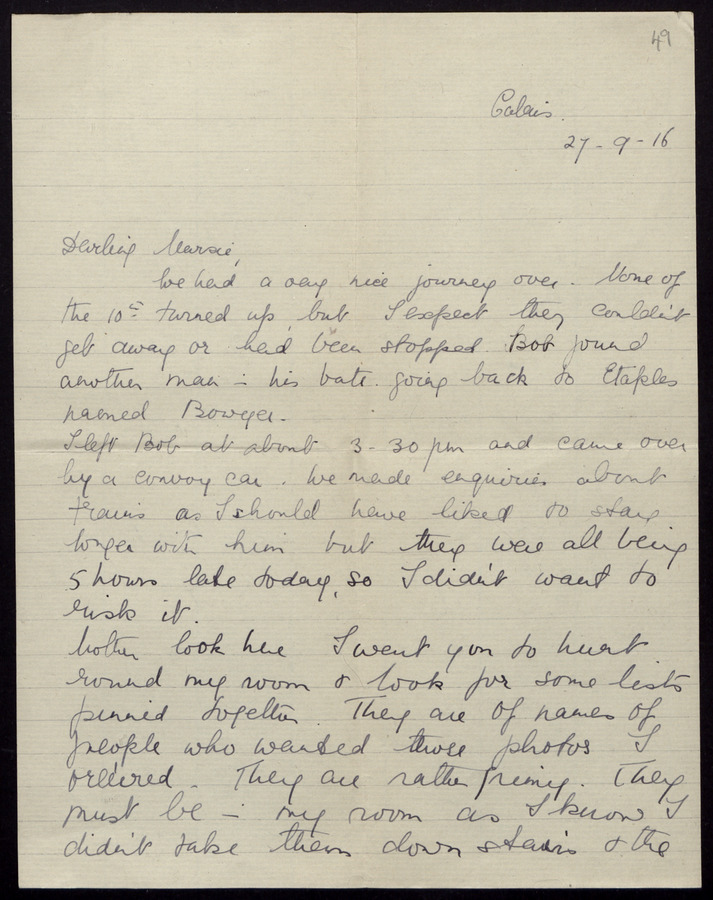 49
Calais.
27-9-16
Darling Mursie,
We had a very nice journey over. None of
the 10th turned up but I expect they couldn't
get away or had been stopped. Bob found
another man in his batt. going back to Etaples
named Bowyer.
I left Bob at about 3-30 pm and came over
by a convoy car. We made enquiries about
trains as I should have liked to stay
longer with him but they were all being
5 hours late today, so I didn't want to
risk it.
Mother look here I want you to hunt
round my room & look for some lists
pinned together. They are of names of
people who wanted those photos I
ordered. They are rather grimy. They
must be in my room as I know I
didn't take them down stairs & the